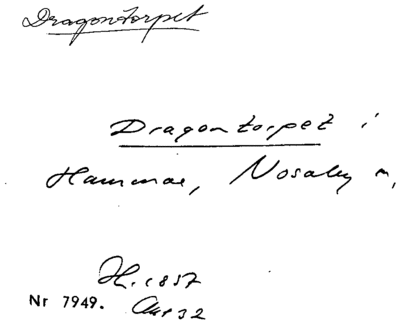 Dragontorpet
Dragontorpet i
Hammar, Nosaby n,
H. 1857
Nr 7949.